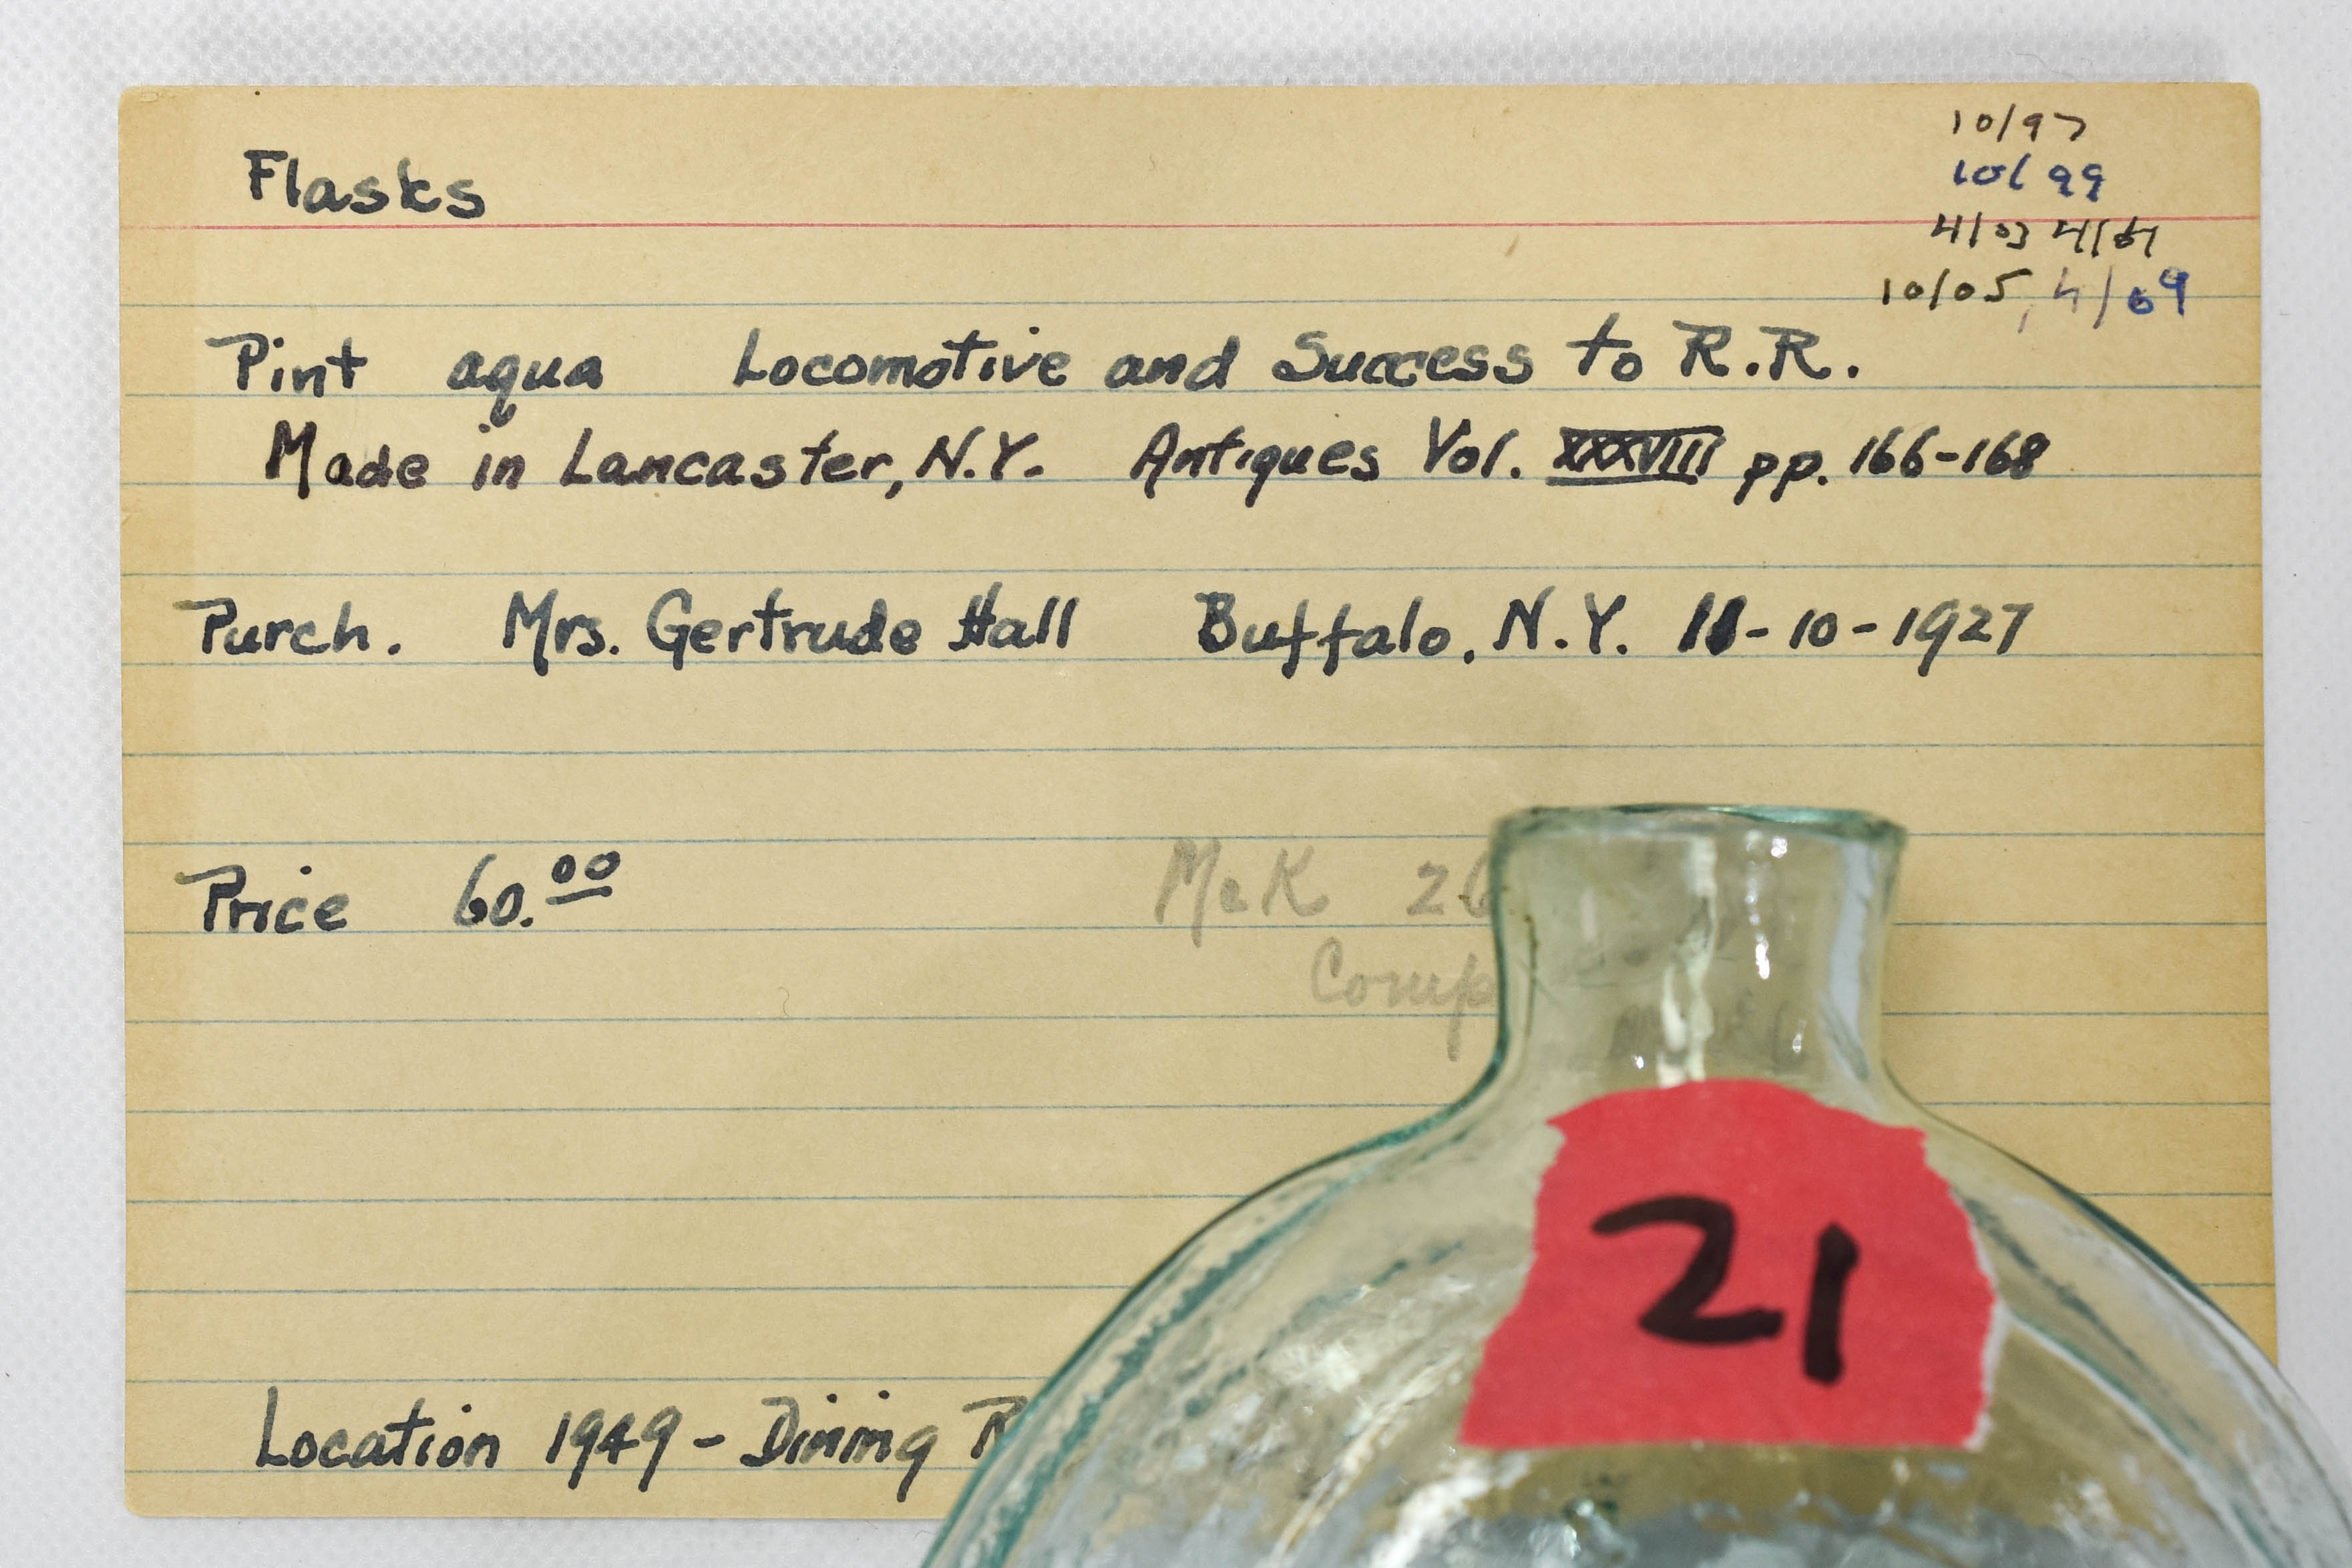 Flasks
10/97
10/99
4/03 4/04
10/05, 4/09
Pint aqua Locomotive and Success to R.R.
Made in Lancaster, N.Y. Antiques Vol. XXXVIII pp. 166-168
Purch. Mrs. Gertrude Hall Buffalo, N.Y. 11-10-1927
Price 60.00
McK
Location 1949 - Dining
21